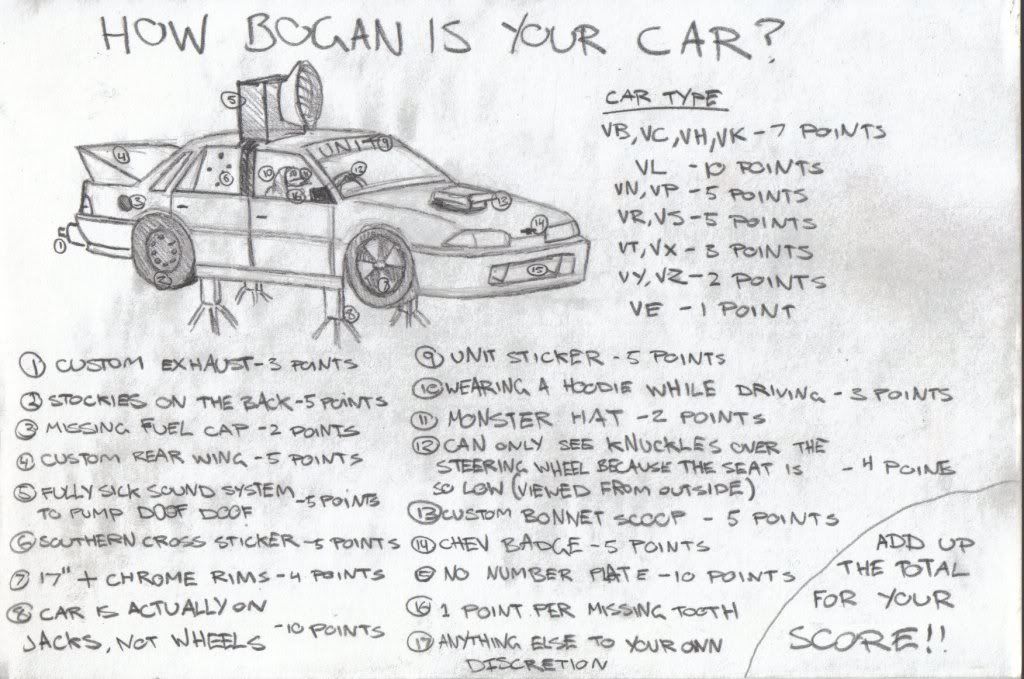 HOW BOGAN IS YOUR CAR?
CAR TYPE
VB, VC, VH, VK - 7 POINTS
VL - 10 POINTS
VN, VP - 5 POINTS
VR, VS - 5 POINTS
VT, VX - 3 POINTS
VY, VZ - 2 POINTS
VE - 1 POINT
5
UNIT 9
4
6
10
11
12
16
3
13
14
1
2
7
15
8
1 CUSTOM EXHAUST - 3 POINTS
2 STOCKIES ON THE BACK - 5 POINTS
3 MISSING FUEL CAP - 2 POINTS
4 CUSTOM REAR WING - 5 POINTS
5 FULLY SICK SOUND SYSTEM - 5 POINTS
TO PUMP DOOF DOOF
6 SOUTHERN CROSS STICKER - 5 POINTS
7 17" + CHROME RIMS - 4 POINTS
8 CAR IS ACTUALLY ON
JACKS, NOT WHEELS - 10 POINTS
9 UNIT STICKER - 5 POINTS
10 WEARING A HOODIE WHILE DRIVING - 3 POINTS
11 MONSTER HAT - 2 POINTS
12 CAN ONLY SEE KNUCKLES OVER THE
STEERING WHEEL BECAUSE THE SEAT IS - 4 POINTS
SO LOW (VIEWED FROM OUTSIDE)
13 CUSTOM BONNET SCOOP - 5 POINTS
14 CHEV BADGE - 5 POINTS
NO NUMBER PLATE - 10 POINTS
16 1 POINT PER MISSING TOOTH
17 ANYTHING ELSE TO YOUR OWN
DISCRETION
ADD UP
THE TOTAL
FOR YOUR
SCORE!!